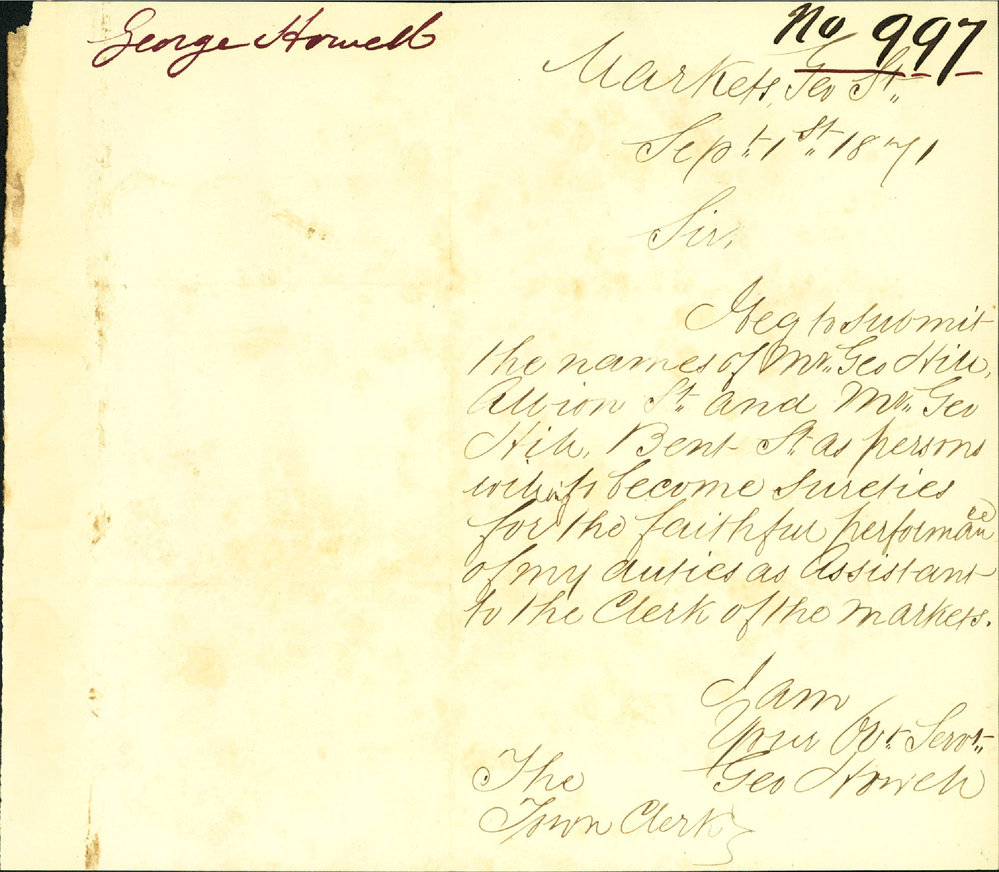 George Howell
No 997
Markets, Geo St.
Sept. 1st. 1871
Sir,
I beg to submit
the names of Mr. Geo Hill,
Albion St. and Mr. Geo
Hill, Bent St. as persons
willing to become sureties
for the faithful performance
of my duties as Assistant
to the Clerk of the Markets.
I am
Your Obt. Servt.
Geo Howell
The
Town Clerk